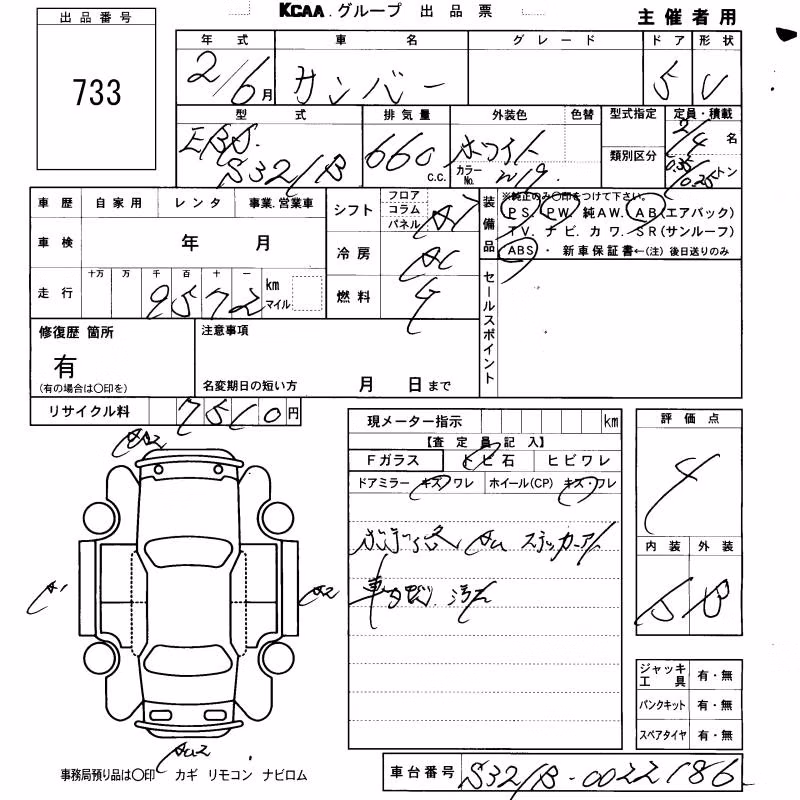 KCAA.グループ 出品票
主催者用
出品番号
733
年式 車名 グレード ドア 形状
2/6月 サンバー 5 V
型式 排気量 外装色 色替 型式指定 定員・積載
EBD. S321B 660 c.c. ホワイト カラーNo. W19 類別区分 2/4名 0.35/0.25トン
車歴 自家用 レンタ 事業.営業車
車検 年 月
走行 十万 万 千 百 十 一 km マイル
9572
シフト フロア コラム パネル AT
冷房 AC
燃料 G
装備品
※純正のみ○印をつけて下さい。
PS. PW. 純AW. AB(エアバック)
TV. ナビ. カワ. SR(サンルーフ)
ABS・ 新車保証書←(注) 後日送りのみ
セールスポイント
修復歴 箇所
有
(有の場合は○印を)
注意事項
名変期日の短い方 月 日まで
リサイクル料 7510円
現メーター指示 km
【査定員記入】
Fガラス トビ石 ヒビワレ
ドアミラー キズ ワレ ホイール(CP) キズ・ワレ
ステッカーアト
汚れ
評価点
4
内装 外装
B
A2
A1
A2
AU2
ジャッキ工具 有・無
パンクキット 有・無
スペアタイヤ 有・無
事務局預り品は○印 カギ リモコン ナビロム
車台番号 S321B-0022186